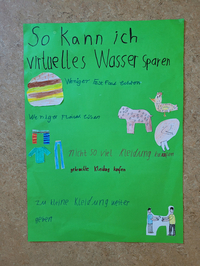 So kann ich
virtuelles Wasser sparen
Weniger Fastfood essen
Weniger Fleisch essen
nicht so viel Kleidung kaufen
gebrauchte Kleidung kaufen
zu kleine Kleidung weiter
geben